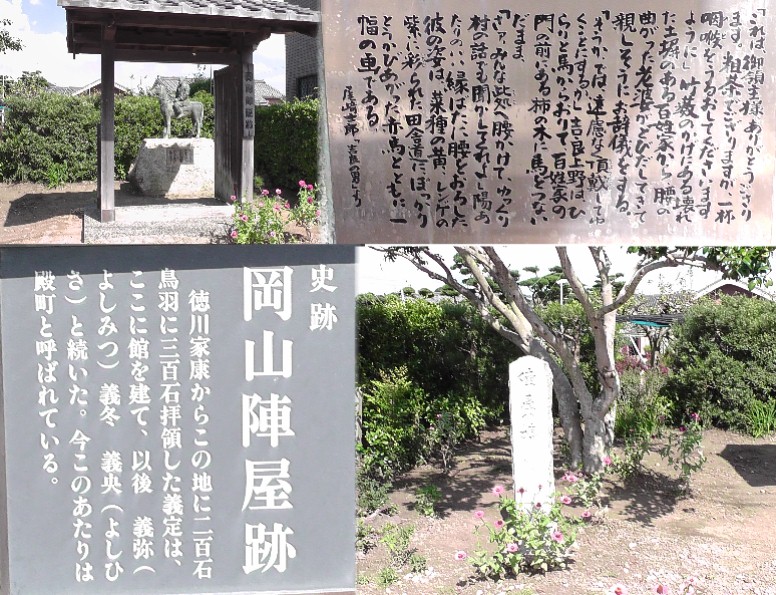 「これは御領主様ありがとうござり
ます。粗茶でござりますが、一杯
咽喉をうるおしてくださいます
ように」竹薮のかげにある壊れ
た土塀のある百姓家から腰の
曲がった老婆がとびだしてきて
親しそうにお辞儀をする。
「そうか、では、遠慮なく頂戴してい
くことにするか」吉良上野はひ
らりと馬からおりて百姓家の
門の前にある柿の木に馬をつない
だまま
「さァみんな此処へ腰かけて、ゆっくり
村の話でも聞かしてくれよ」陽あ
たりのいい縁ばたに腰をおろした
彼の姿は、菜種の黄、レンゲの
紫に彩られた田舎道にぽっかり
とうかびあがった赤馬とともに一
幅の画である
尾崎士郎「吉良の男」より
史跡
岡山陣屋跡
徳川家康からこの地に二百石
鳥羽に三百石拝領した義定は、
ここに館を建て、以後 義弥(
よしみつ)義冬 義央(よしひ
さ)と続いた。今このあたりは
殿町と呼ばれている。